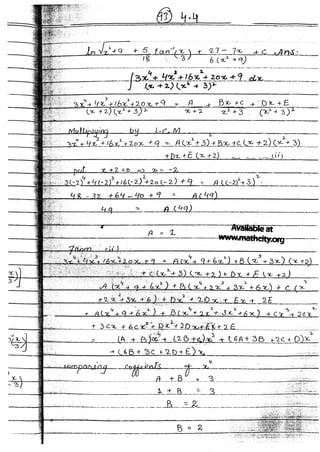 93
4.4
ln √x²+9 + 5/18 tan⁻¹(x/3) + 27 - 7x / 6(x²+9) + C Ans.
∫ 3x⁴ + 4x³ + 16x² + 20x + 9 / (x+2)(x²+3)² dx
3x⁴+4x³+16x²+20x+9 / (x+2)(x²+3)² = A / x+2 + Bx+C / x²+3 + Dx+E / (x²+3)²
Multiplying by L.C.M
3x⁴+4x³+16x²+20x+9 = A(x²+3)²+Bx+C(x+2)(x²+3)
+Dx+E(x+2) (i)
put x+2=0 => x=-2
3(-2)⁴+4(-2)³+16(-2)²+20(-2)+9 = A((-2)²+3)²
48 - 32 + 64 - 40 + 9 = A(49)
49 = A(49)
Available at
A = 1
www.mathcity.org
From (i)
3x⁴+4x³+16x²+20x+9 = A(x⁴+9+6x²)+B(x³+3x)(x+2)
+C(x²+3)(x+2)+Dx+E(x+2)
= A(x⁴+9+6x²)+B(x⁴+2x³+3x²+6x)+C(x³
+2x²+3x+6)+Dx²+2Dx+Ex+2E
= A(x⁴+9+6x²)+B(x⁴+2x³+3x²+6x)+Cx³+2Cx²
+3Cx+6C+Dx²+2Dx+Ex+2E
= (A+B)x⁴+(2B+C)x³+(6A+3B+2C+D)x²
+(6B+3C+2D+E)x
comparing cofficents of x⁴
A + B = 3
1 + B = 3
B = 2
B = 2